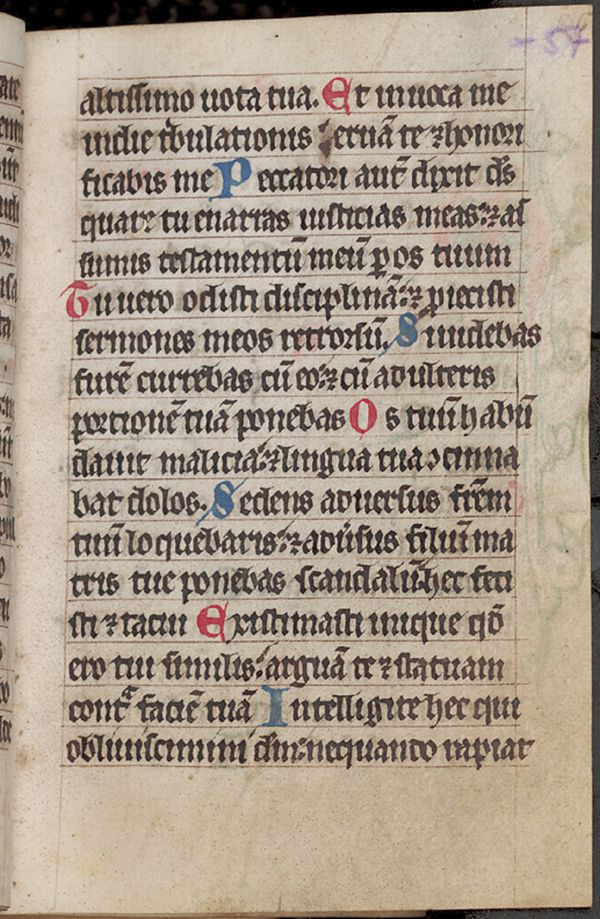 57
altissimo uota tua. Et inuoca me
in die t̾bulationis eruā te ⁊ honori
ficabis me Peccatori aut̄ dixit ds̄
quare tu enarras iusticias meas: ⁊ as
sumis testamentū meū ꝑ os tuum
Tu uero odisti disciplinā: ⁊ ꝓiecisti
sermones meos retrorsū. Si uidebas
furē currebas cū eo: ⁊ cū adulteris
ꝑortionē tuā ponebas Os tuū habū
dauit malicia: ⁊ lingua tua ↄcinna
bat dolos. Sedens aduersus frēm
tuū loquebaris: ⁊ adūsus filiū ma
tris tue ponebas scandalū: hec feci
sti ⁊ tacui Existimasti inique qō
ero tui similis: arguā te ⁊ statuam
contᵃ faciē tuā Intelligite hec qui
obliuiscimini dm̄: nequando rapiat